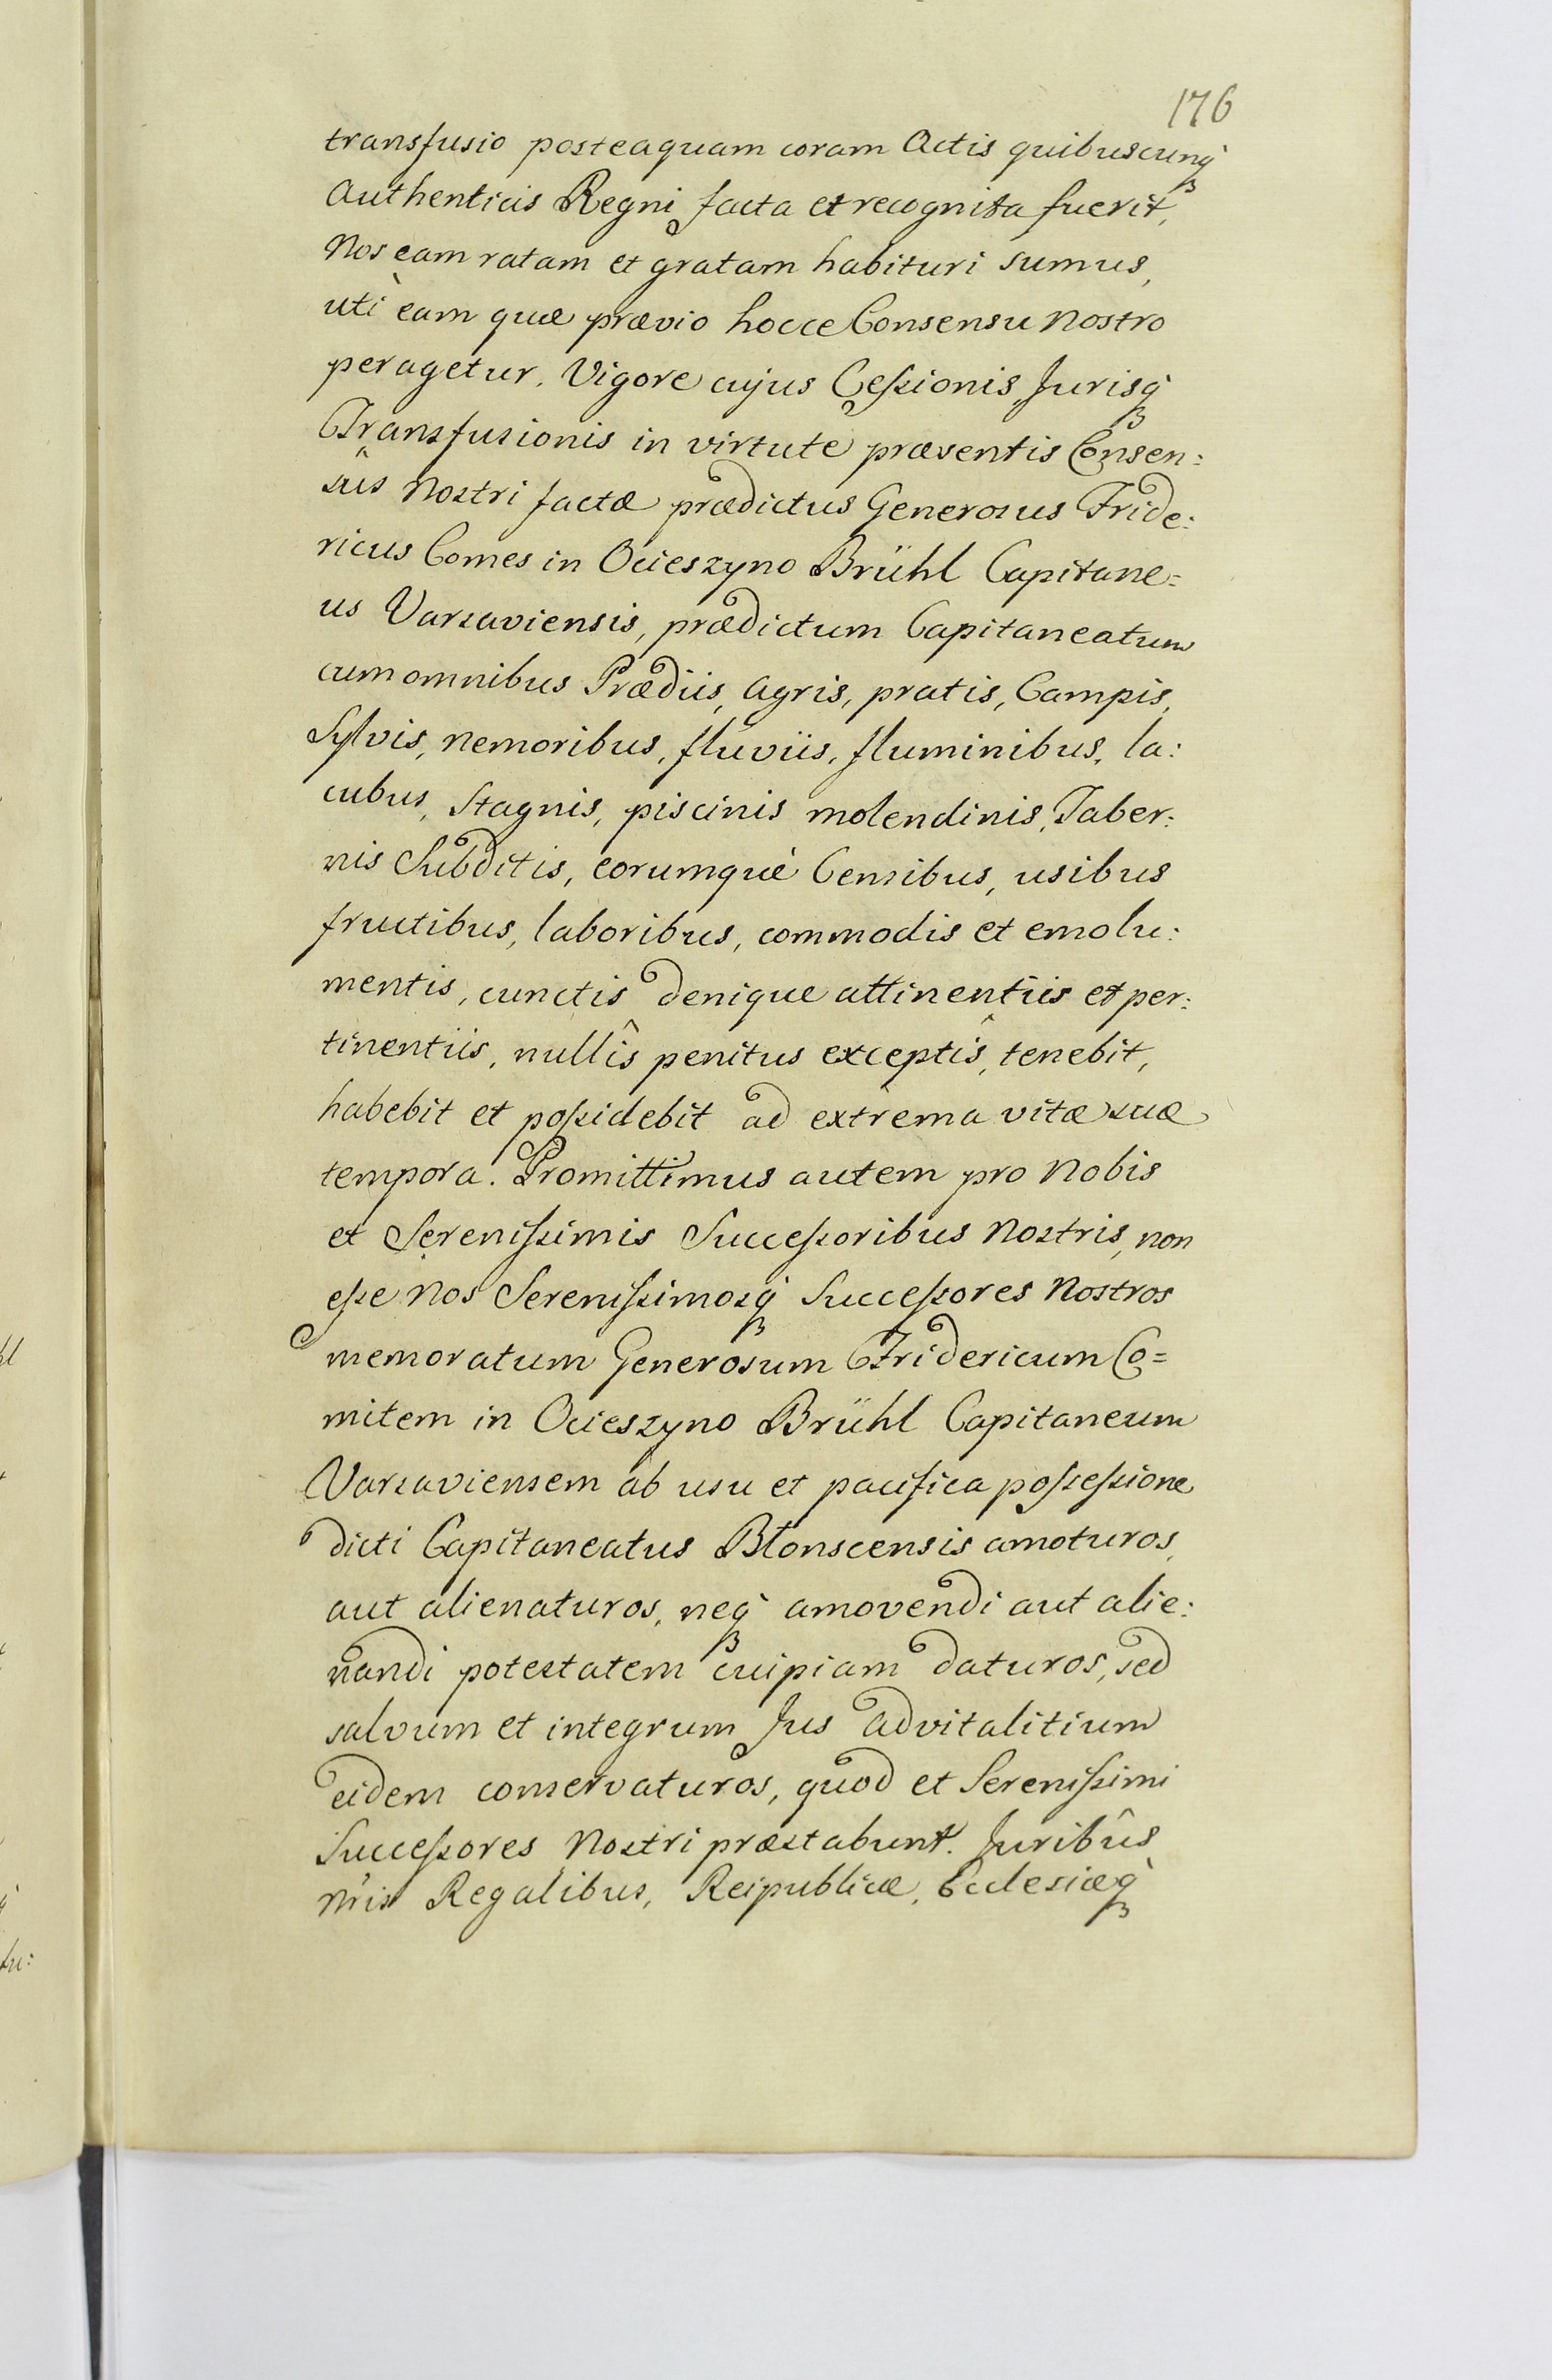 176
transfusio posteaquam coram Actis quibuscunq́ꝫ
Authenticis Regni facta et recognita fuerit,
Nos eam ratam et gratam habituri sumus,
utì eam quæ prævio hocce Consensu Nostro
peragetur. Vigore cujus Ceſsionis, Jurisq́ꝫ
Transfusionis in virtute præsentis Consen:
sûs Nostri factæ prædictus Generosus Fride:
ricus Comes in Ocieszyno Brühl Capitane=
us Varsaviensis, prædictum Capitaneatum
cum omnibus Prædiis, Agris, pratis, Campis,
Sylvis, nemoribus, fluviis, fluminibus, la:
cubus, Stagnis, piscinis molendinis, Taber:
nis Subditis, eorumquè Censibus, usibus
fructibus, laboribus, commodis et emolu:
mentis, cunctis denique attinentiis et per:
tinentiis, nullîs penitus exceptîs, tenebit,
habebit et poſsidebit ad extrema vitæ suæ
tempora. Promittimus autem pro Nobis
et Sereniſsimis Succeſsoribus Nostris, non
eſse Nos Sereniſsimosq́ꝫ Succeſsores Nostros
memoratum Generosum Fridericum Co=
mitem in Ocieszyno Brühl Capitaneum
Varsaviensem ab usu et pacifica poſseſsione
dicti Capitaneatus Błonscensis amoturos,
aut alienaturos, neq́ꝫ amovendi aut alie:
nandi potestatem cuipiam daturos, sed
salvum et integrum Jus advitalitium
eidem conservaturos, quod et Sereniſsimi
Succeſsores Nostri præstabunt. Juribûs
Nris Regalibus, Reipublicæ, Ecclesiæq́ꝫ